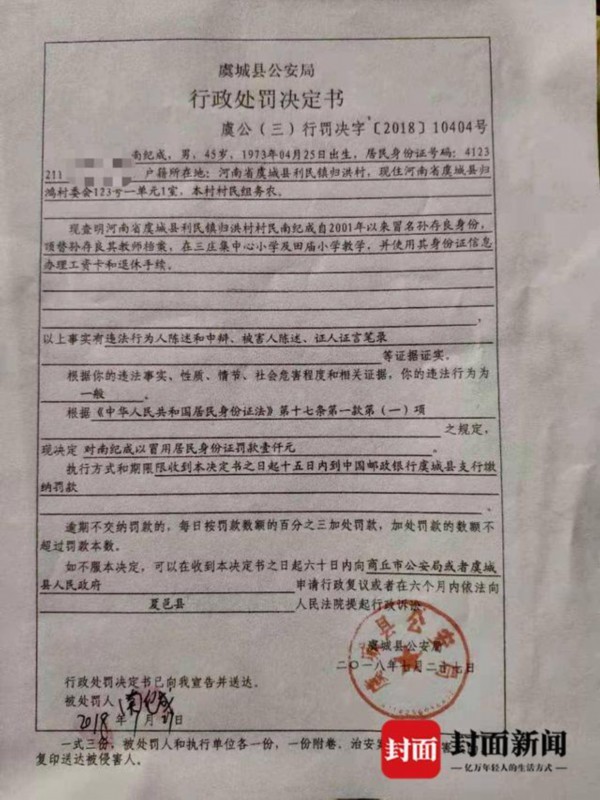 虞城县公安局
行政处罚决定书
虞公（三）行罚决字〔2018〕10404号
南纪成，男，45岁，1973年04月25日出生，居民身份证号码：4123
211 户籍所在地：河南省虞城县利民镇归洪村，现住河南省虞城县归
鸿村委会123号一单元1室，本村村民组务农。
现查明河南省虞城县利民镇归洪村村民南纪成自2001年以来冒名孙存良身份，
顶替孙存良其教师档案，在三庄集中心小学及田庙小学教学，并使用其身份证信息
办理工资卡和退休手续。
以上事实有违法行为人陈述和申辩、被害人陈述、证人证言笔录
等证据证实。
根据你的违法事实、性质、情节、社会危害程度和相关证据，你的违法行为为
一般。
根据《中华人民共和国居民身份证法》第十七条第一款第（一）项
之规定，
现决定 对南纪成以冒用居民身份证罚款壹仟元
执行方式和期限限收到本决定书之日起十五日内到中国邮政银行虞城县支行缴
纳罚款
逾期不交纳罚款的，每日按罚款数额的百分之三加处罚款，加处罚款的数额不
超过罚款本数。
如不服本决定，可以在收到本决定书之日起六十日内向商丘市公安局或者虞城
县人民政府 申请行政复议或者在六个月内依法向
夏邑县 人民法院提起行政诉讼。
虞城县公安局
二〇一八年七月二十七日
行政处罚决定书已向我宣告并送达。
被处罚人 南纪成
2018年 月 日
一式三份，被处罚人和执行单位各一份，一份附卷。治安
复印送达被侵害人。
封面 封面新闻
亿万年轻人的生活方式